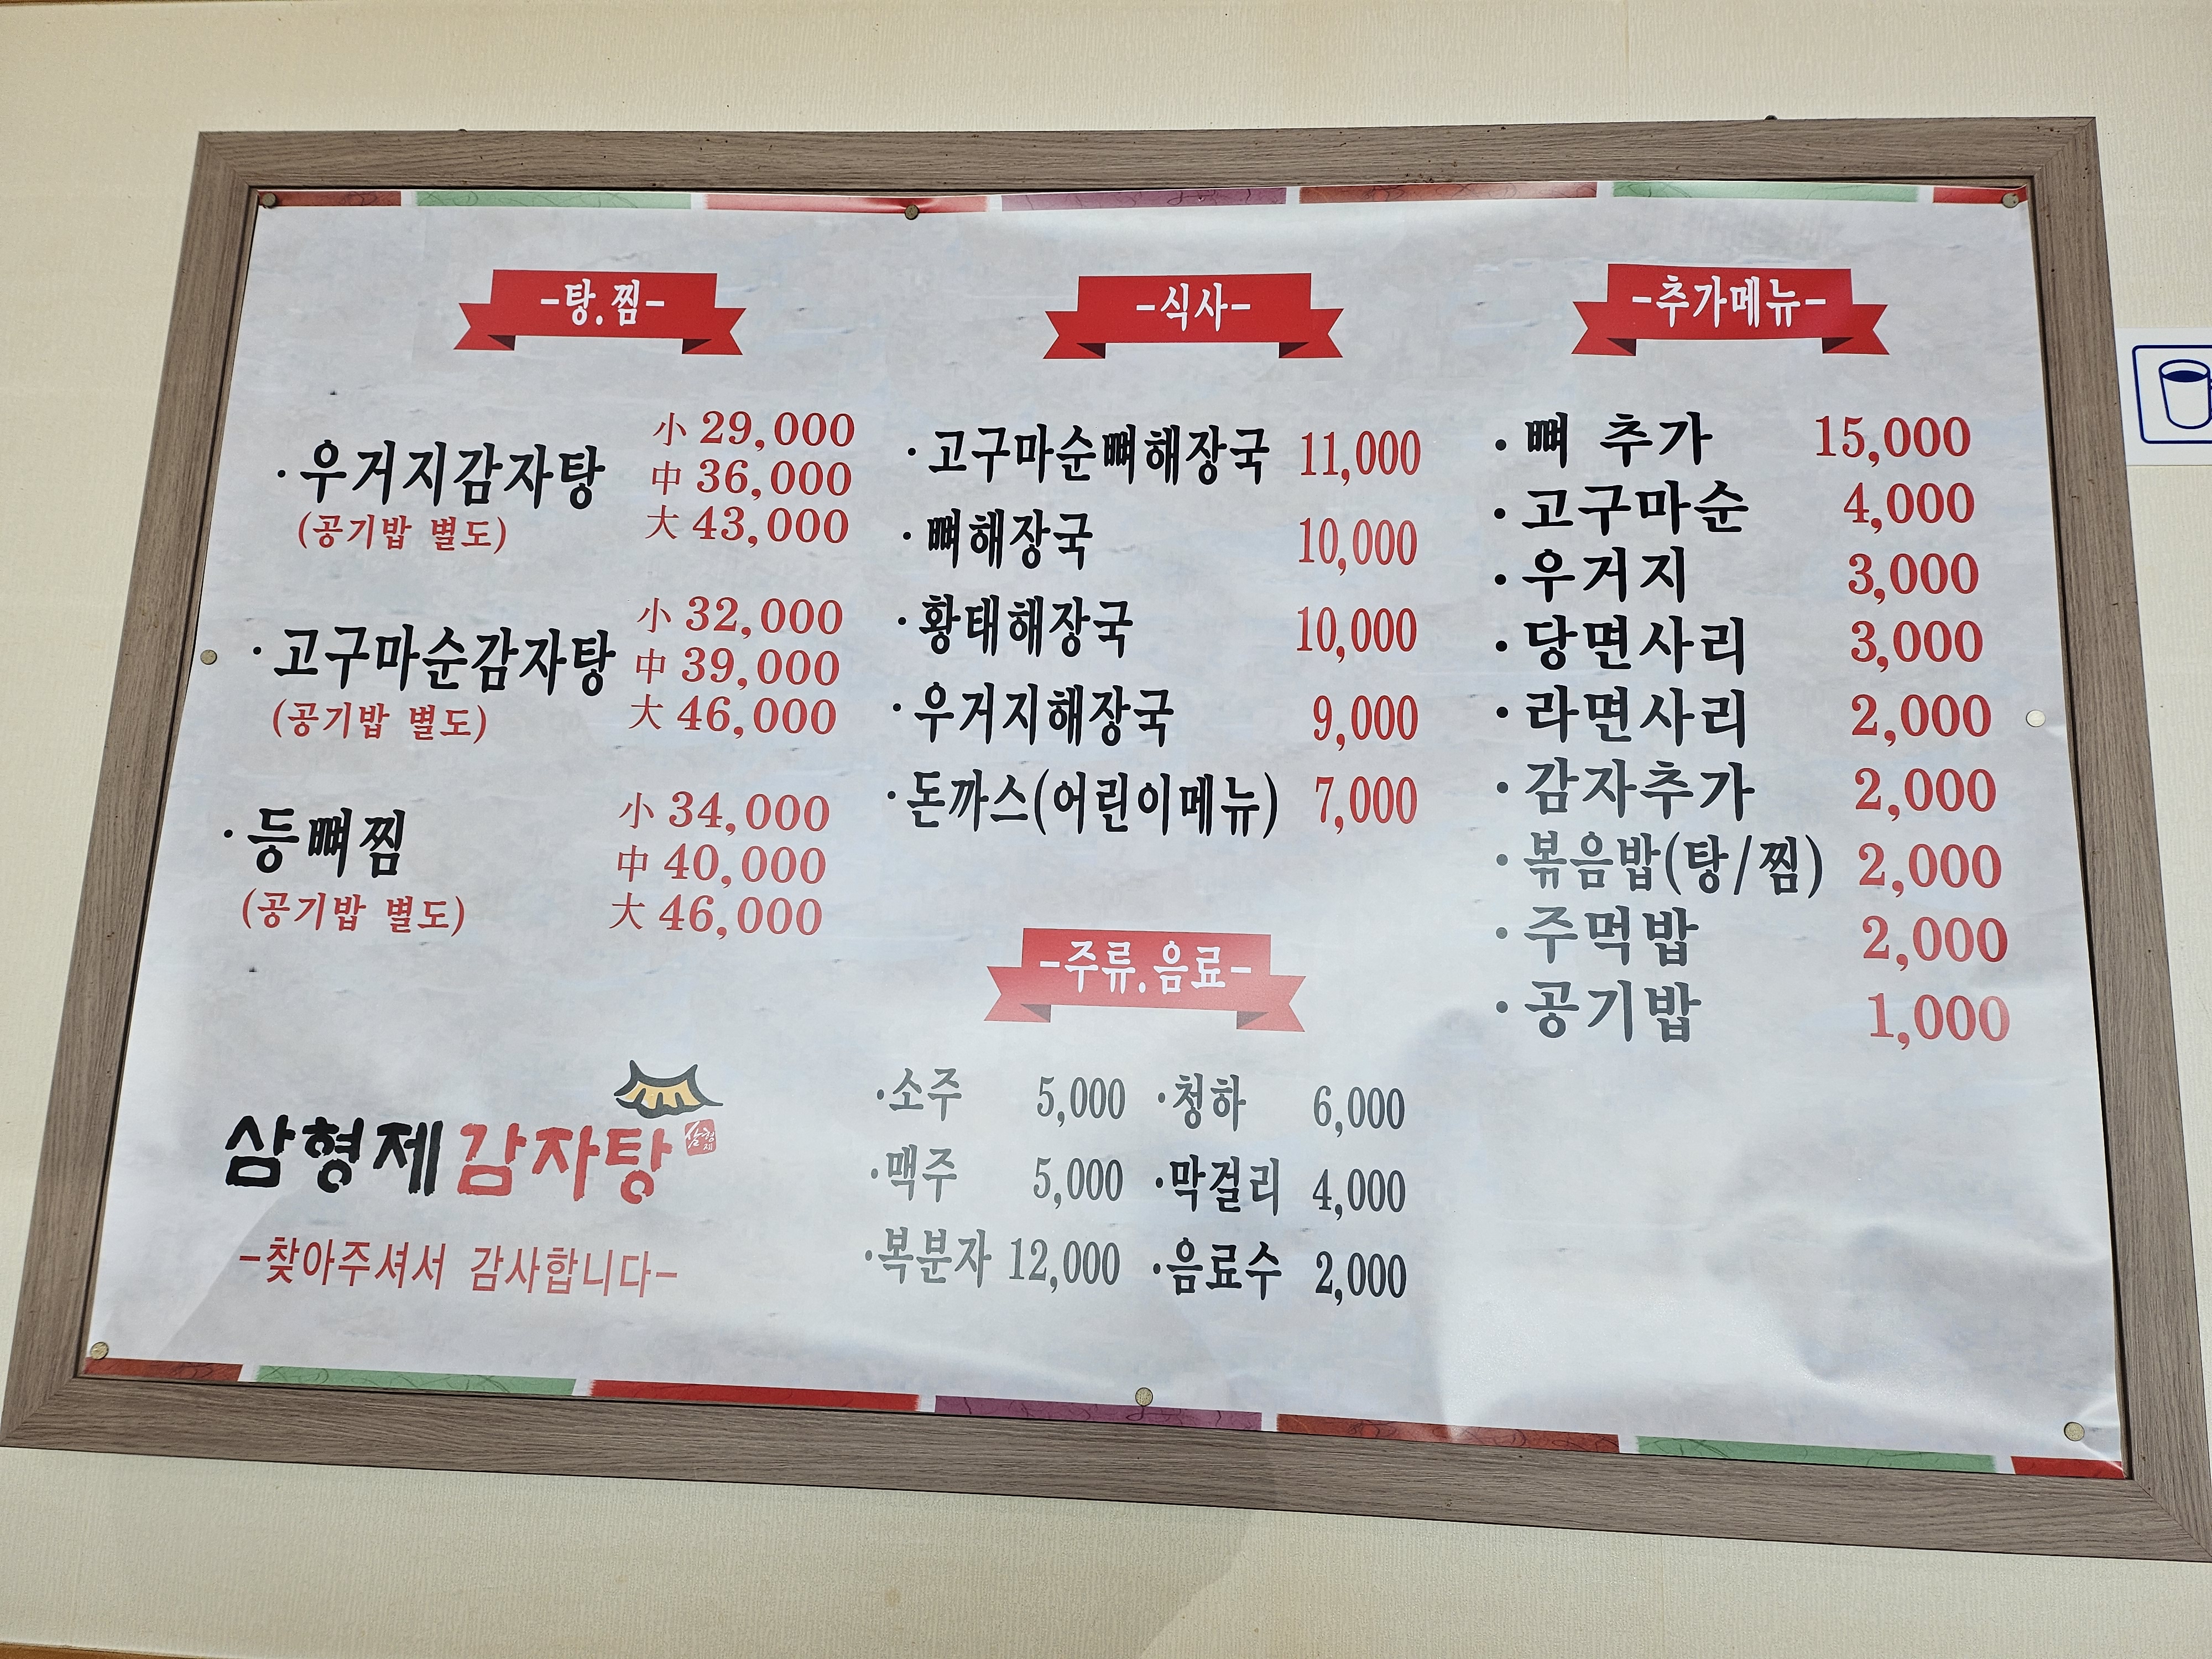 -탕.찜-
小 29,000
·우거지감자탕 中 36,000
(공기밥 별도) 大 43,000
小 32,000
·고구마순감자탕 中 39,000
(공기밥 별도) 大 46,000
小 34,000
·등뼈찜 中 40,000
(공기밥 별도) 大 46,000
삼형제감자탕 삼형제
-찾아주셔서 감사합니다-
-식사-
·고구마순뼈해장국 11,000
·뼈해장국 10,000
·황태해장국 10,000
·우거지해장국 9,000
·돈까스(어린이메뉴) 7,000
-주류.음료-
·소주 5,000 ·청하 6,000
·맥주 5,000 ·막걸리 4,000
·복분자 12,000 ·음료수 2,000
-추가메뉴-
·뼈 추가 15,000
·고구마순 4,000
·우거지 3,000
·당면사리 3,000
·라면사리 2,000
·감자추가 2,000
·볶음밥(탕/찜) 2,000
·주먹밥 2,000
·공기밥 1,000